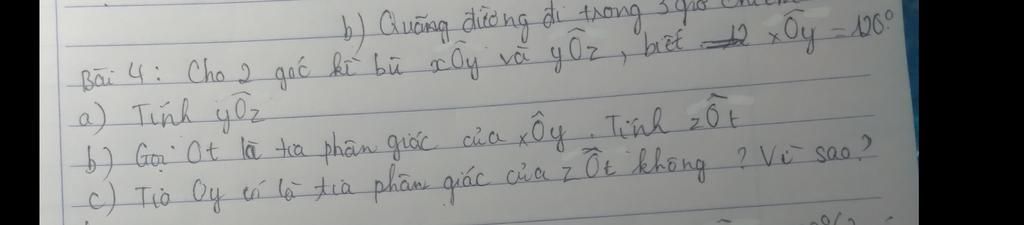 b) Quãng đường đi trong 3 giờ
Bài 4: Cho 2 góc kề bù xÔy và yÔz, biết xÔy = 120°
a) Tính yÔz
b) Gọi Ot là tia phân giác của xÔy. Tính zÔt
c) Tia Oy có là tia phân giác của zÔt không? Vì sao?